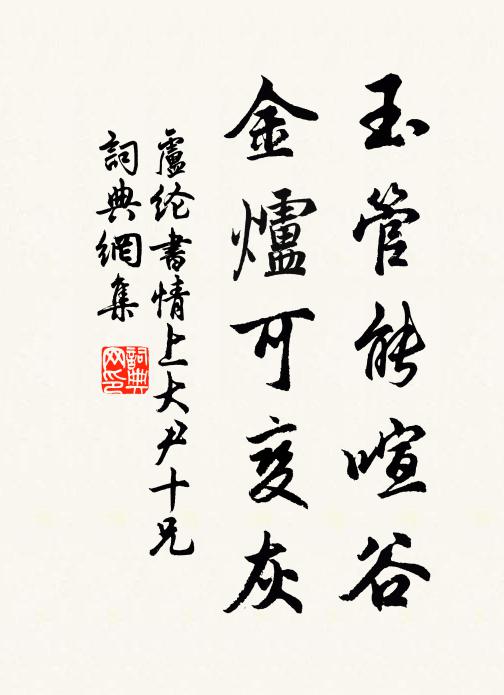 玉管能喧谷
金爐可变灰
盧纶書情上大尹十兄
詞典網集
詞典
网印